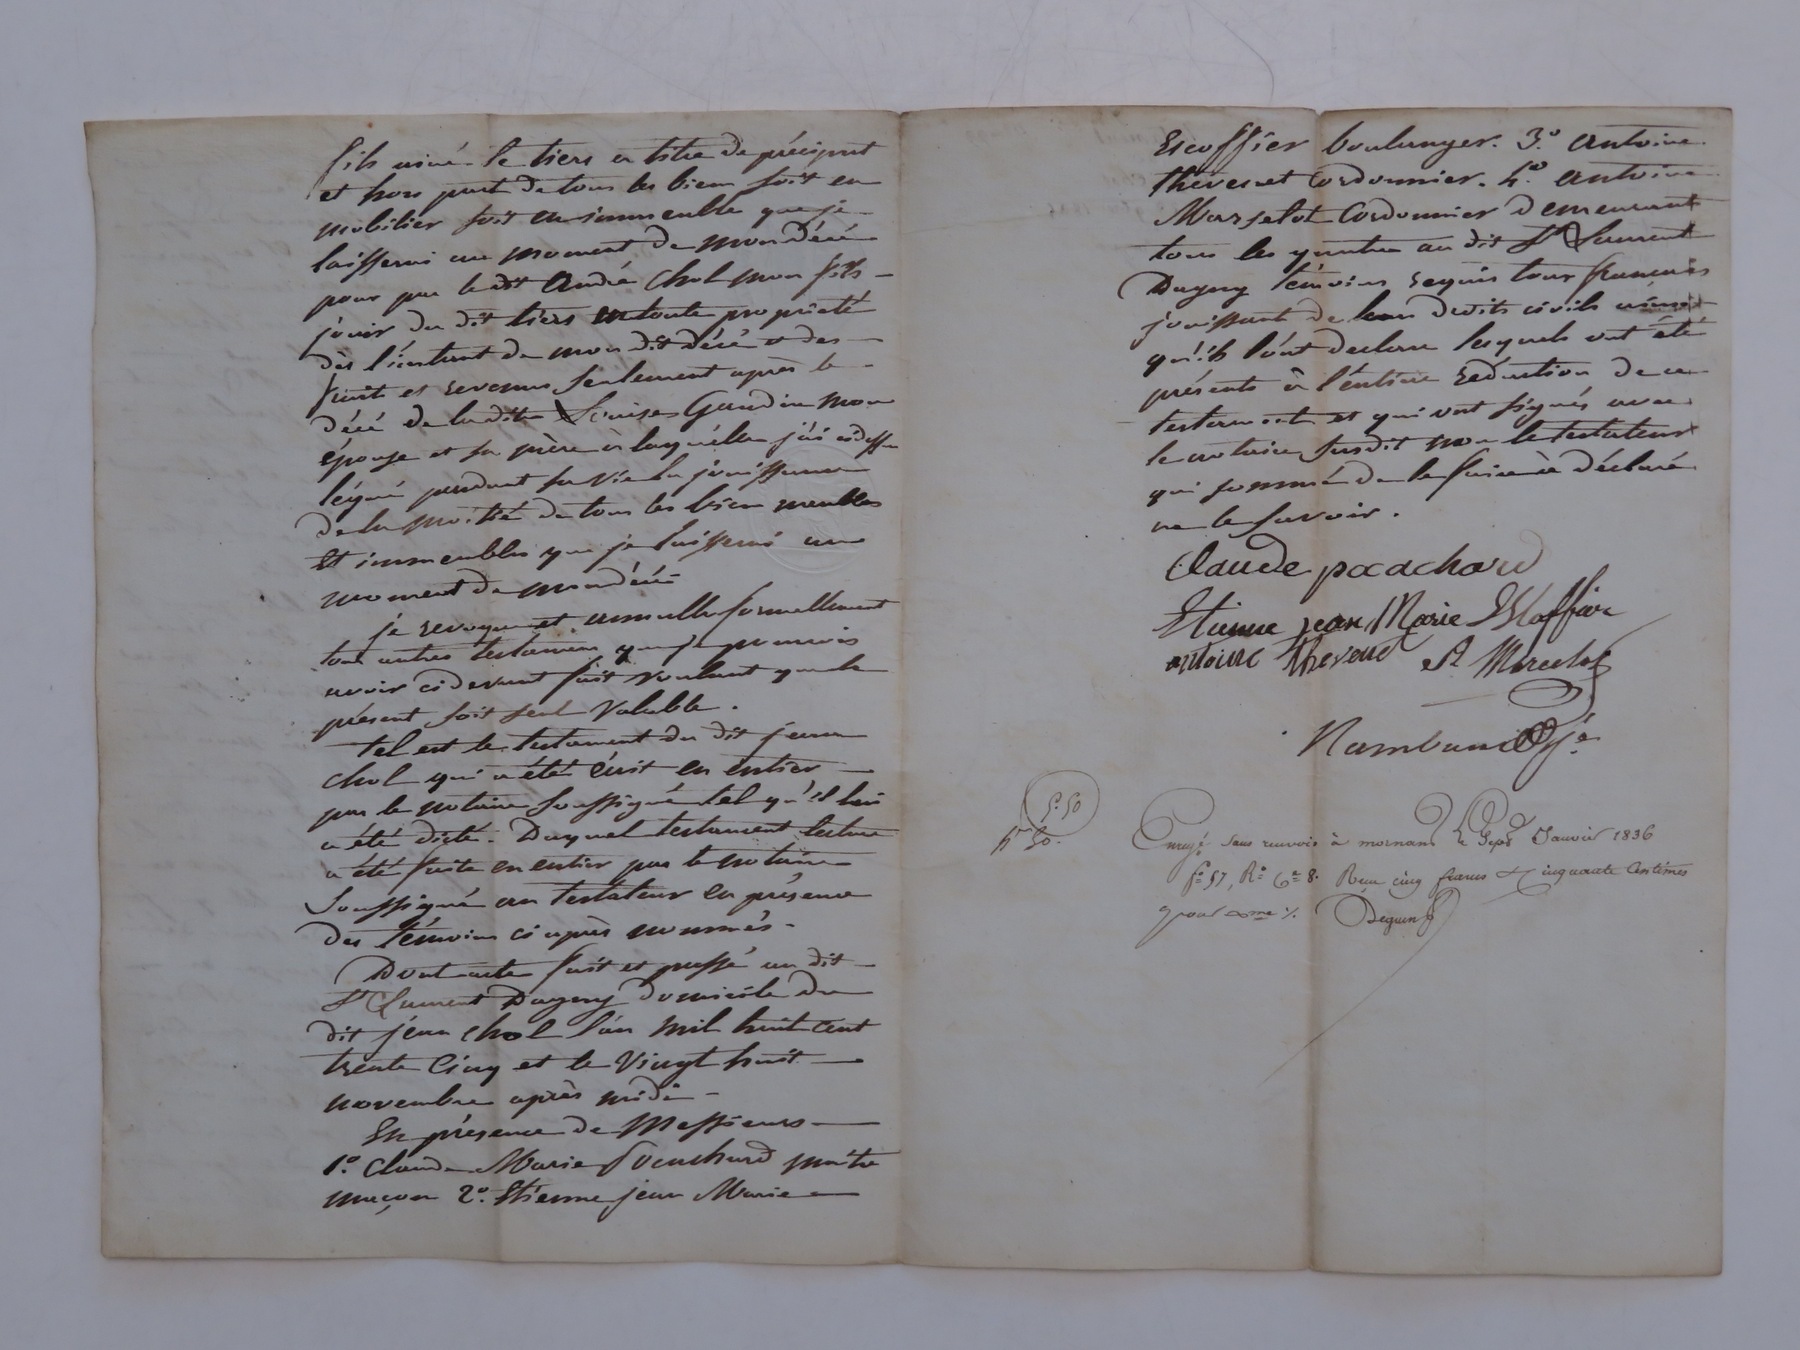 fils ainé le tiers en titre de préciput
et hors part de tous les biens soit en
mobilier soit en immeuble que je
laisserai au moment de mon décé
pour par le dit André Chol mon fils
jouir du dit tiers en toute propriété
dès l'instant de mon dit décé et des
fruit et revenus seulement après le
décé de ladite Louise Gaudin mon
épouse et sa mère à laquelle j'ai cidessu
légué pendant sa vie la jouissance
de la moitié de tous les biens meubles
et immeubles que je laisserai au
moment de mon décé
je revoque et annulle formellement
tous autres testamens que je pourrois
avoir cidevant fait voulant que le
présent soit seul valable.
tel est le testament du dit jean
chol qui a été écrit en entier
par le notaire soussigné tel qu'il lui
a été dicté. Duquel testament lecture
a été faite en entier par le notaire
soussigné au testateur en présence
des témoins ci après nommés.
Dont acte fait et passé au dit
St Laurent Dagny domicile du
dit jean chol l'an mil huit cent
trente cinq et le vingt huit
novembre après midi
En présence de Messieurs
1.º Claude Marie Pouchard maitre
maçon 2.º Etienne jean Marie
Escoffier boulanger. 3.º antoine
thevenet cordonnier. 4.º antoine
Marselot Cordonnier demeurant
tous les quatre au dit St Laurent
Dagny témoins requis tous français
jouissant de leurs droits civils ainsi
qu'ils l'ont declare lesquels ont été
présents à l'entière redaction de ce
testament et qui ont signés avec
le notaire susdit non le testateur
qui sommé de le faire à déclaré
ne le savoir.
Claude pocachard
Etienne jean Marie Escoffier
antoine thevenet A Marcelot
5.50
50.
Enregé sans renvois à mornant le Sept Janvier 1836
fº 57, Rº Cse 8. Reçu cinq francs et cinquante Centimes
pour